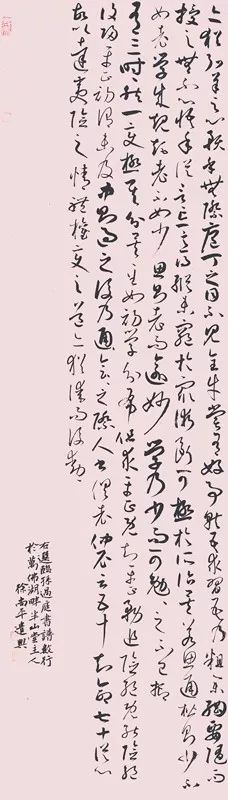 亦猶弘羊之心預乎無際庖丁之目不見全牛嘗有好事就吾求習吾乃粗舉綱要隨而
授之無不心悟手從言忘意得縱未窮於眾術斷可極於所詣矣若思通楷則少不
如老學成規矩老不如少思則老而逾妙學乃少而可勉勉之不已抑
有三時時然一變極其分矣至如初學分布但求平正既知平正務追險絕既能險絕
復歸平正初謂未及中則過之後乃通會之際人書俱老仲尼云五十知命七十從心
故以達夷險之情體權變之道亦猶謀而後動
右選臨孫過庭書譜數行
於萬佛湖畔半山堂主人
徐尚平遣興